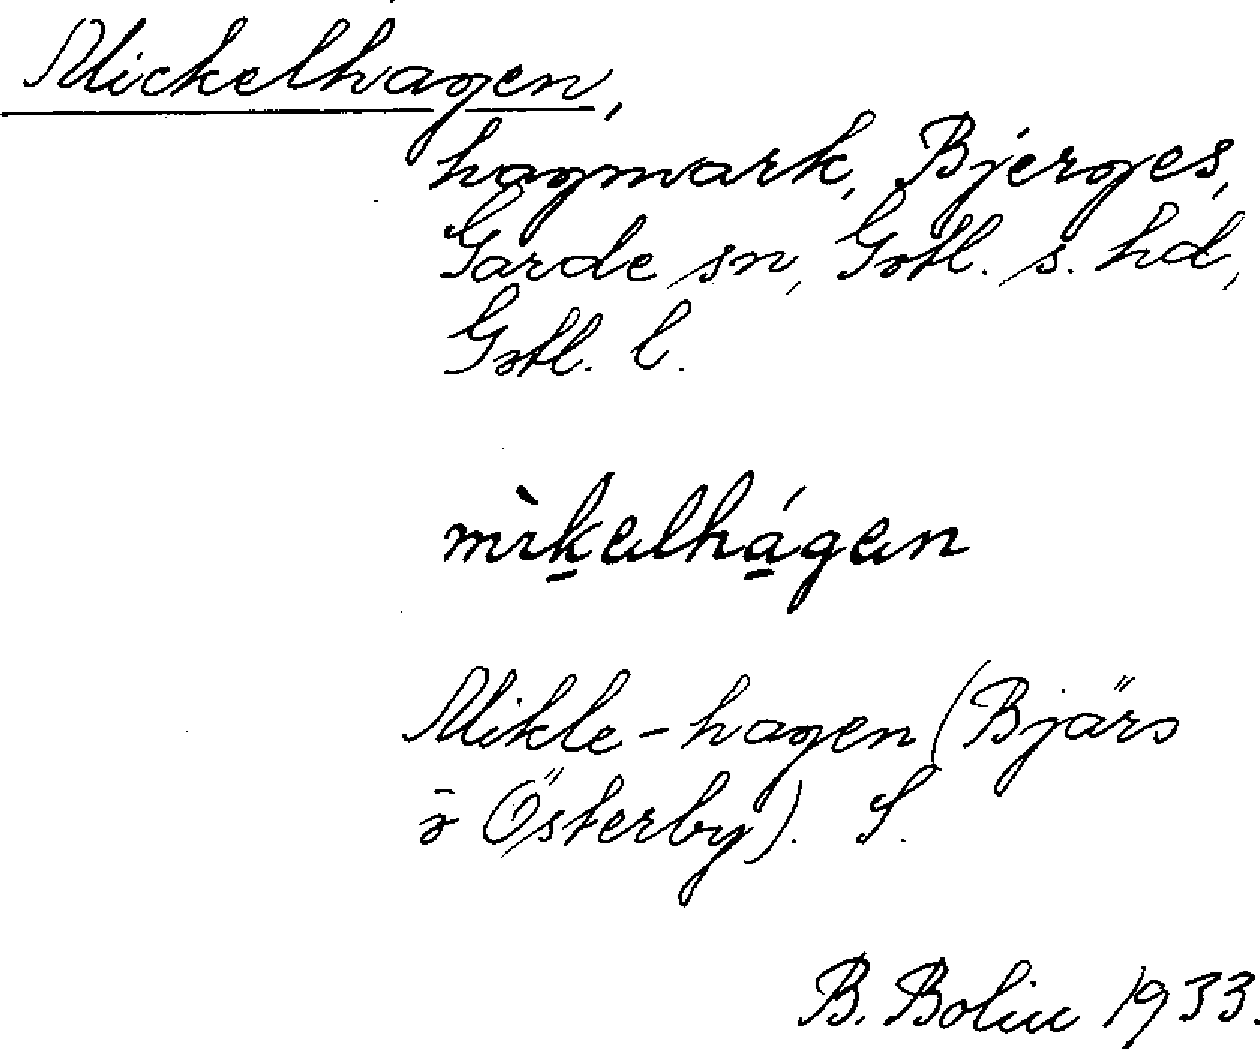 Mickelhagen,
hagmark, Bjerges,
Garde sn, Gotl. s. hd,
Gotl. l.
mìk̲ælhá̲gæn
Mikle-hagen (Bjärs
o̅ Österby). S.
B. Bolin 1933.